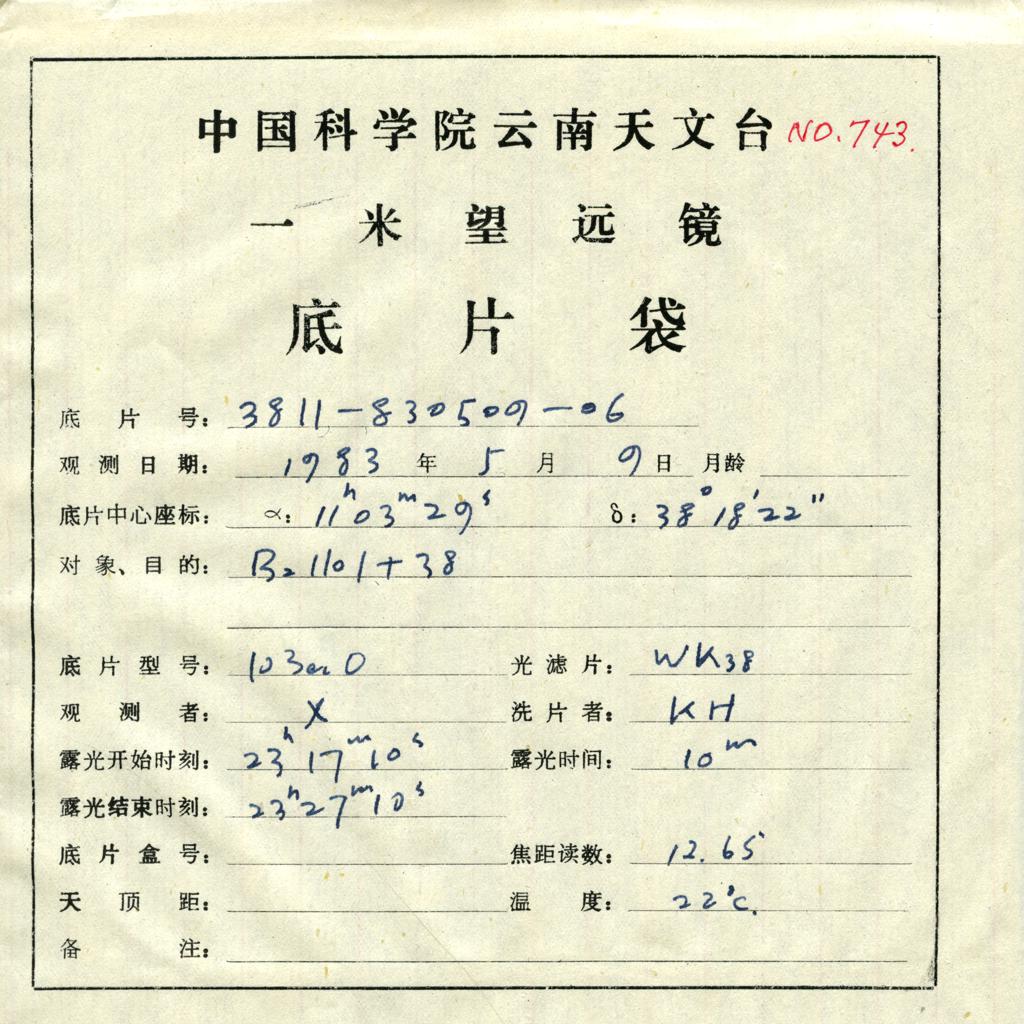 中国科学院云南天文台 NO.743.
一米望远镜
底片袋
底片号：3811-830509-06
观测日期：1983年5月9日 月龄
底片中心座标：α：11h03m29s δ：38°18′22″
对象、目的：B2 1101+38
底片型号：103aO 光滤片：WK38
观测者：X 洗片者：KH
露光开始时刻：23h17m10s 露光时间：10m
露光结束时刻：23h27m10s
底片盒号： 焦距读数：12.65
天顶距： 温度：22℃.
备注：